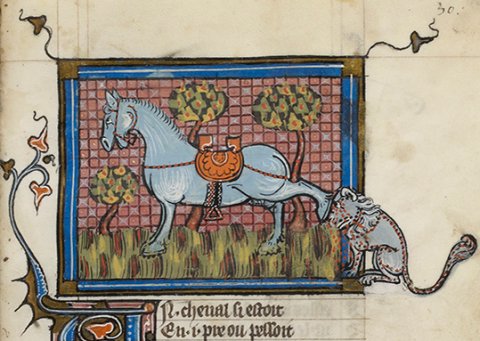 30.
N· cheual si estoit
En ·i· pre ou pessoit